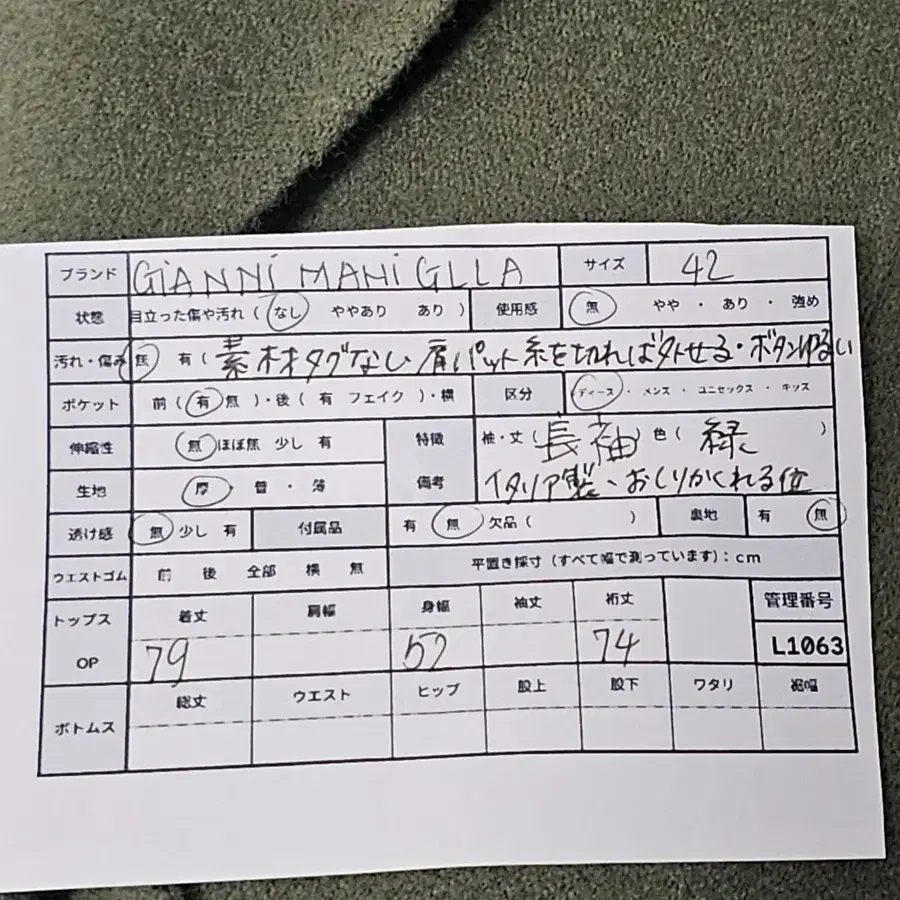 ブランド GiANNi MAHi GLLA サイズ 42
状態 目立った傷や汚れ ( なし ややあり あり ) 使用感 無 やや ・ あり ・ 強め
汚れ・傷み 無 有 ( 素材タグなし 肩パット糸を切れば外せる・ボタンゆるい
ポケット 前 ( 有 無 )・後 ( 有 フェイク )・横 区分 ディース ・ メンズ ・ ユニセックス ・ キッズ
伸縮性 無 ほぼ無 少し 有 特徴 袖・丈 ( 長袖 ) 色 ( 緑 )
生地 厚 ・ 普 ・ 薄 備考 イタリア製、おしりかくれる位
透け感 無 少し 有 付属品 有 無 欠品 ( ) 裏地 有 無
ウエストゴム 前 後 全部 横 無 平置き採寸 (すべて幅で測っています) : cm
トップス 着丈 肩幅 身幅 袖丈 裄丈 管理番号
OP 79 52 74 L1063
ボトムス 総丈 ウエスト ヒップ 股上 股下 ワタリ 裾幅